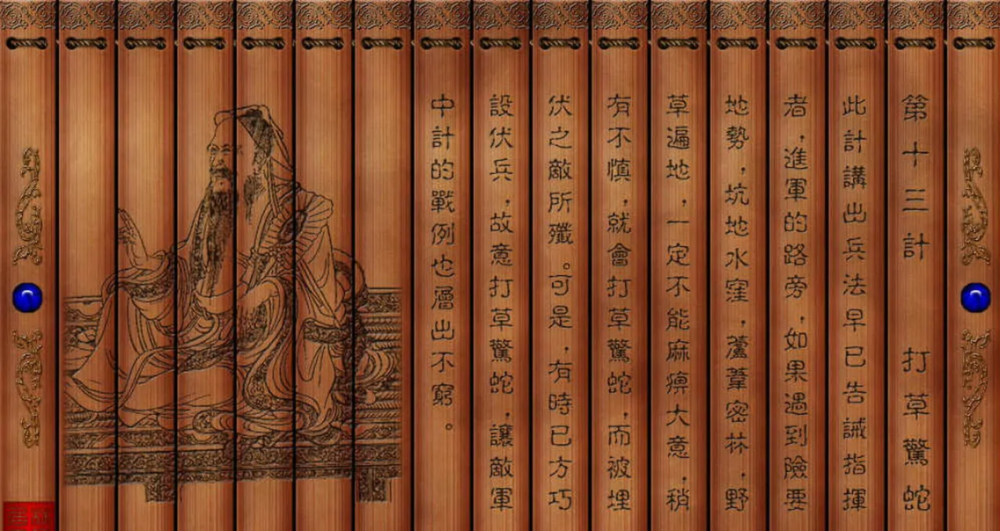 第十三計 打草驚蛇
此計講出兵法早已告誡指揮
者,進軍的路旁,如果遇到險要
地勢,坑地水窪,蘆葦密林,野
草遍地,一定不能麻痹大意,稍
有不慎,就會打草驚蛇,而被埋
伏之敵所殲。可是,有時己方巧
設伏兵,故意打草驚蛇,讓敵軍
中計的戰例也層出不窮。